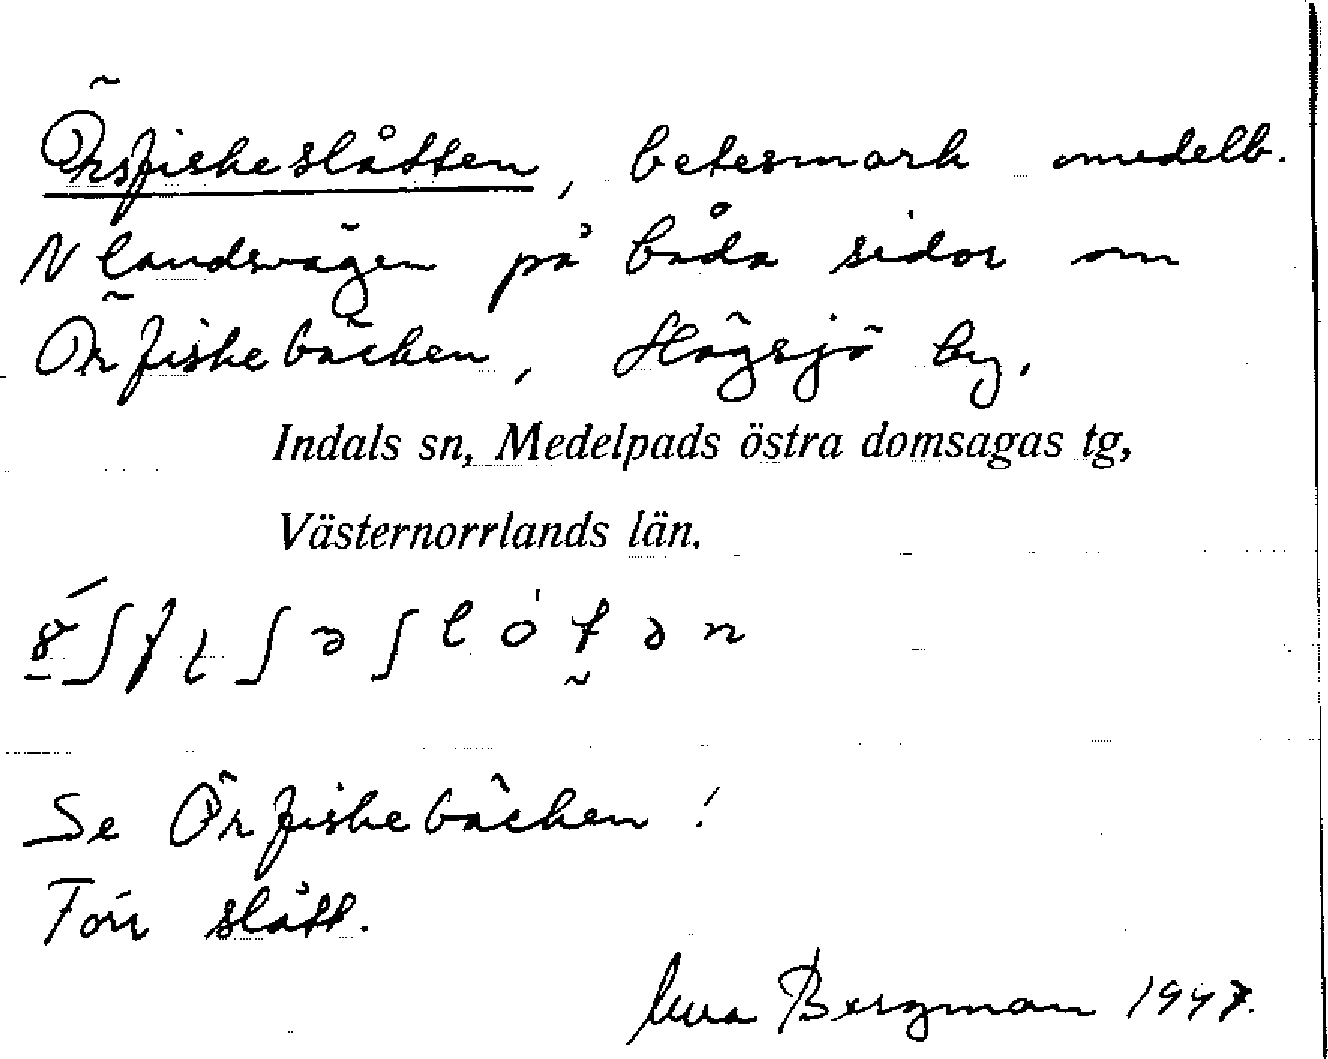 Örsfiskeslåtten, betesmark omedelb.
N landsvägen på båda sidor om
Örfiskebäcken, Högsjö by.
Indals sn, Medelpads östra domsagas tg,
Västernorrlands län.
Se Örfiskebäcken!
Förr slått.
Bergman 1947.